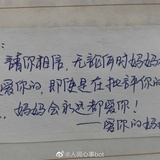 請你相信,无論何时妈妈
爱你的,即使是在批評你的
妈妈会永远都爱你!
——爱你的妈
求人间心事bot